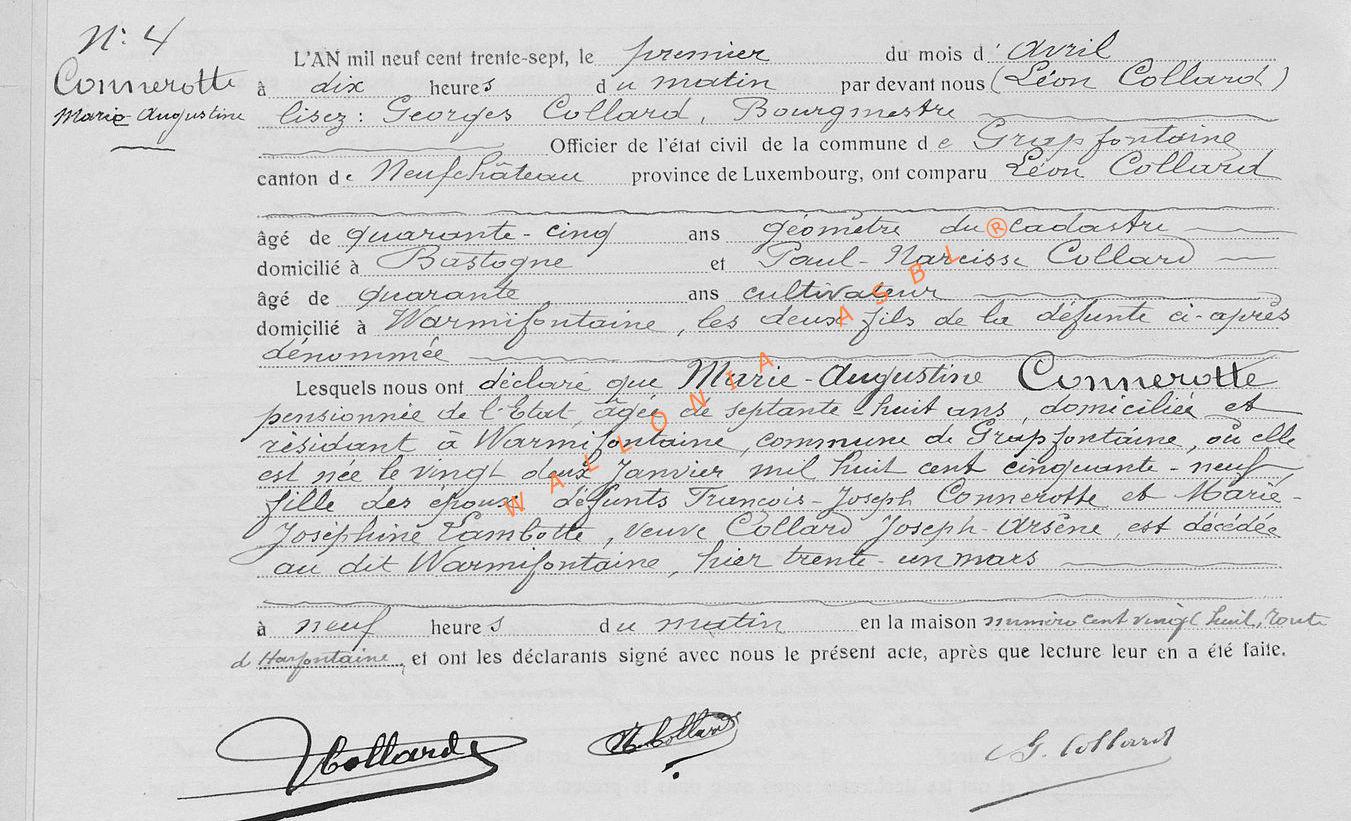 N° 4
Connerotte
Marie-Augustine
L'AN mil neuf cent trente-sept, le premier du mois d' Avril
à dix heures du matin par devant nous (Léon Collard)
lisez : Georges Collard, Bourgmestre
Officier de l'état civil de la commune de Grapfontaine
canton de Neufchâteau province de Luxembourg, ont comparu Léon Collard
âgé de quarante-cinq ans géomètre du cadastre
domicilié à Bastogne et Paul-Narcisse Collard
âgé de quarante ans cultivateur
domicilié à Warmifontaine, les deux fils de la défunte ci-après
dénommée
Lesquels nous ont déclaré que Marie-Augustine Connerotte
pensionnée de l'Etat, âgée de septante-huit ans, domiciliée et
résidant à Warmifontaine, commune de Grapfontaine, où elle
est née le vingt deux Janvier mil huit cent cinquante-neuf
fille des époux défunts François-Joseph Connerotte et Marie-
Joséphine Lambotte, veuve Collard Joseph-Arsène, est décédée
au dit Warmifontaine, hier trente-un mars
à neuf heures du matin en la maison numéro cent vingt huit, route
d'Harfontaine, et ont les déclarants signé avec nous le présent acte, après que lecture leur en a été faite.
Collard
N. Collard
G. Collard
WALLONIA ASBL ®